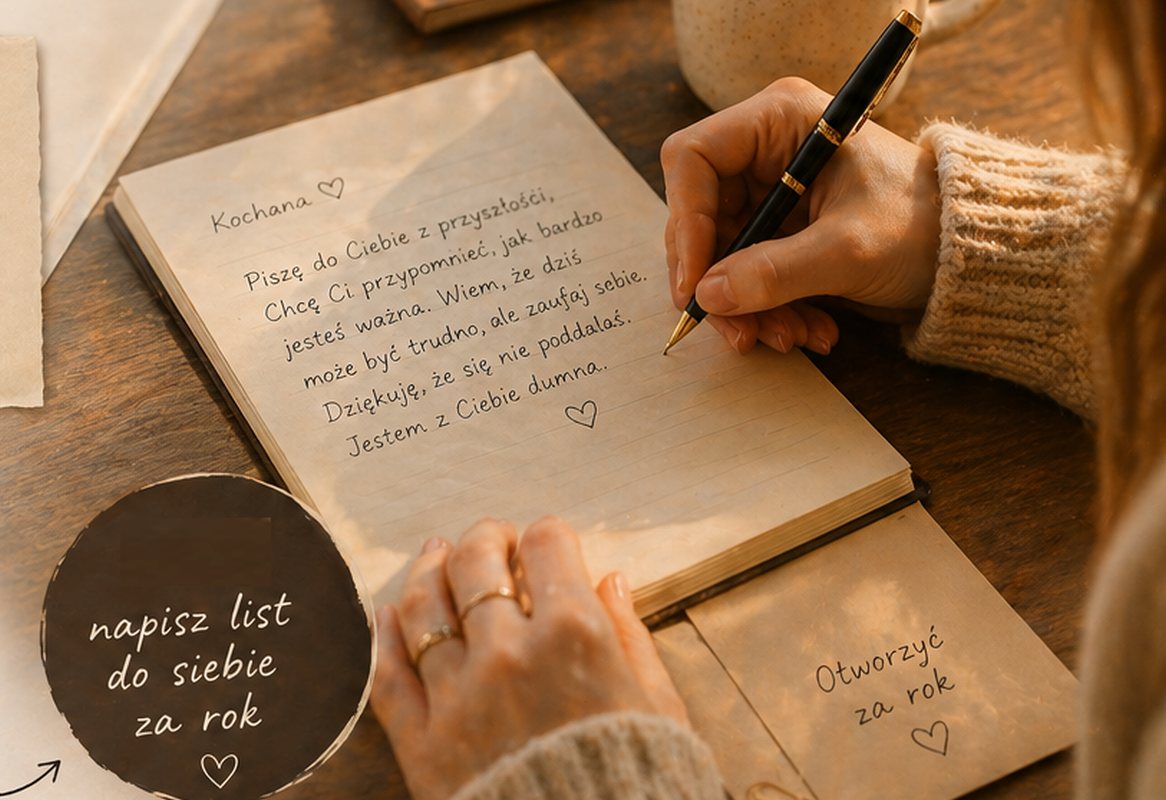 Kochana ♡
Piszę do Ciebie z przyszłości,
Chcę Ci przypomnieć, jak bardzo
jesteś ważna. Wiem, że dziś
może być trudno, ale zaufaj sebie.
Dziękuję, że się nie poddalaś.
Jestem z Ciebie dumna.
♡
napisz list
do siebie
za rok
♡
Otworzyć
za rok
♡